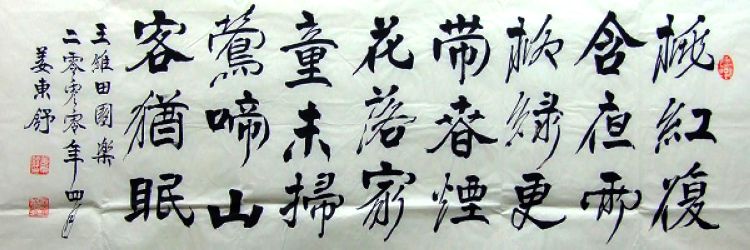 桃紅復
含夜雨
柳綠更
帶春煙
花落家
童未掃
鶯啼山
客猶眠
王維田園樂
二零零零年四月
姜東舒